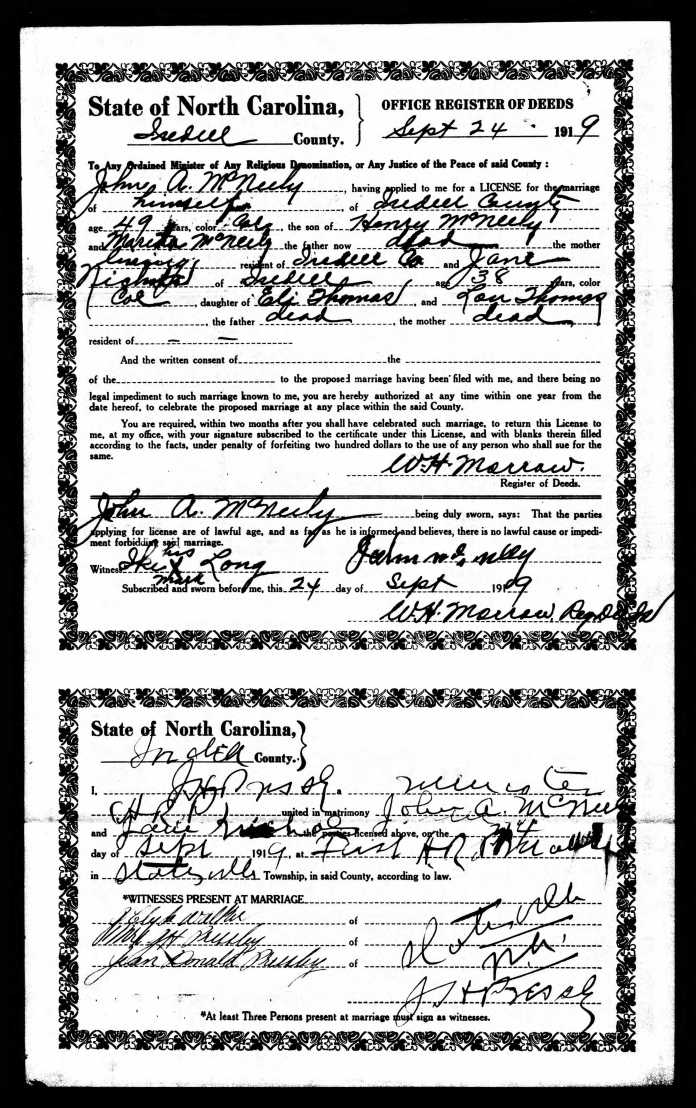 State of North Carolina,
Iredell County.
OFFICE REGISTER OF DEEDS
Sept 24 1919
To Any Ordained Minister of Any Religious Denomination, or Any Justice of the Peace of said County :
John A. McNeely, having applied to me for a LICENSE for the marriage
of himself of Iredell County
age 49 years, color Col, the son of Henry McNeely
and McNeely the father now dead the mother
living, resident of Iredell Co and Jane
of Iredell age 38 years, color
Col, daughter of Eli Thomas, and Lou Thomas
, the father dead, the mother dead
resident of — —
And the written consent of the
of the to the proposed marriage having been filed with me, and there being no
legal impediment to such marriage known to me, you are hereby authorized at any time within one year from the
date hereof, to celebrate the proposed marriage at any place within the said County.
You are required, within two months after you shall have celebrated such marriage, to return this License to
me, at my office, with your signature subscribed to the certificate under this License, and with blanks therein filled
according to the facts, under penalty of forfeiting two hundred dollars to the use of any person who shall sue for the
same.
W.H. Morrow.
Register of Deeds.
John A. McNeely being duly sworn, says: That the parties
applying for license are of lawful age, and as far as he is informed and believes, there is no lawful cause or impedi-
ment forbidding said marriage.
his
Witness Ike X Long
mark
Subscribed and sworn before me, this 24 day of Sept 1919
W.H. Morrow, Reg Deeds
State of North Carolina,
Iredell County.
I, J H Pressly a minister
A R P united in matrimony John A. McNeely
and the parties licensed above, on the 24
day of Sept 1919, at First A R P
in Statesville Township, in said County, according to law.
*WITNESSES PRESENT AT MARRIAGE
of Statesville
Mrs J H Pressley of N.C.
Jean Donald Pressley of
J H Pressly
*At least Three Persons present at marriage must sign as witnesses.